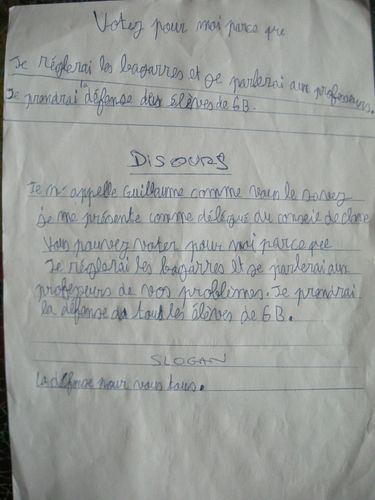 Votez pour moi parce que
Je réglerai les bagarres et je parlerai aux professeurs.
Je prendrai la défense des élèves de 6B.
DISOURS
Je m'appelle Guillaume comme vous le savez
je me présente comme délégué au conseie de classe
Vous pouvez voter pour moi parce que
Je réglerai les bagarres et je parlerai aux
professeurs de vos problèmes. Je prendrai
la défense de tout les élèves de 6B.
SLOGAN
La défense pour vous tous.